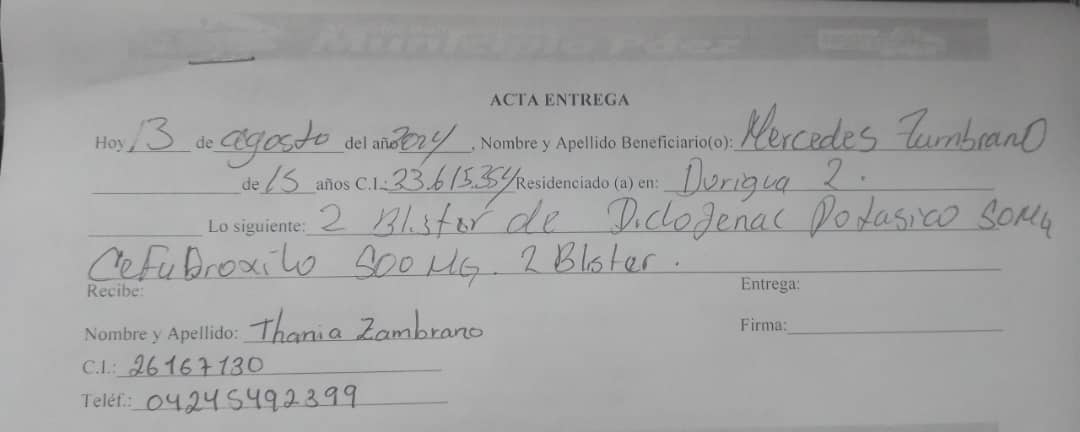 Municipio Páez
ACTA ENTREGA
Hoy 13 de agosto del año 2024, Nombre y Apellido Beneficiario(o): Mercedes Zambrano
de 15 años C.I.: 33.615.354 Residenciado (a) en: Durigua 2.
Lo siguiente: 2 Blister de Diclofenac Potasico 50MG
Cefadroxilo 500 MG. 2 Blister.
Recibe:
Entrega:
Nombre y Apellido: Thania Zambrano
Firma:
C.I.: 26167130
Teléf.: 04245492399